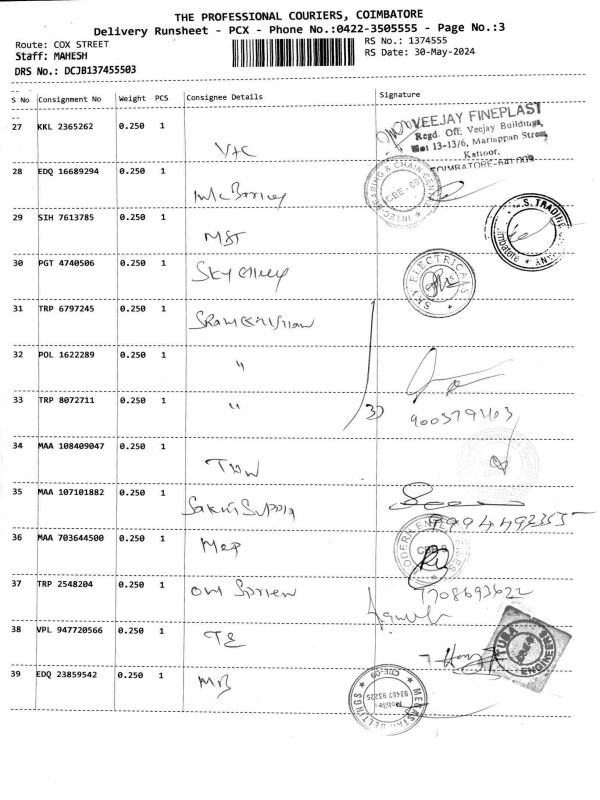 THE PROFESSIONAL COURIERS, COIMBATORE
Delivery Runsheet - PCX - Phone No.:0422-3505555 - Page No.:3
Route: COX STREET
RS No.: 1374555
Staff: MAHESH
RS Date: 30-May-2024
DRS No.: DCJB137455503
S No Consignment No Weight PCS Consignee Details Signature
27 KKL 2365262 0.250 1
VEEJAY FINEPLAST
Regd. Off. Veejay Buildings,
13-13/6, Mariappan Street
Katoor,
COIMBATORE-641 009
28 EDQ 16689294 0.250 1
BEARING & CHAIN CENTRE
CBE-09
29 SIH 7613785 0.250 1 MST
S. TRADING
30 PGT 4740506 0.250 1 Sky
SKY ELECTRICALS
31 TRP 6797245 0.250 1
32 POL 1622289 0.250 1 "
33 TRP 8072711 0.250 1 "
34 MAA 108409047 0.250 1
35 MAA 107101882 0.250 1
9994492355
36 MAA 703644500 0.250 1
MODERN
37 TRP 2548204 0.250 1
38 VPL 947720566 0.250 1 TE
ENGINEERS
39 EDQ 23859542 0.250 1 MB
CBE-09
Mobile:
93457 93225
BELTINGS